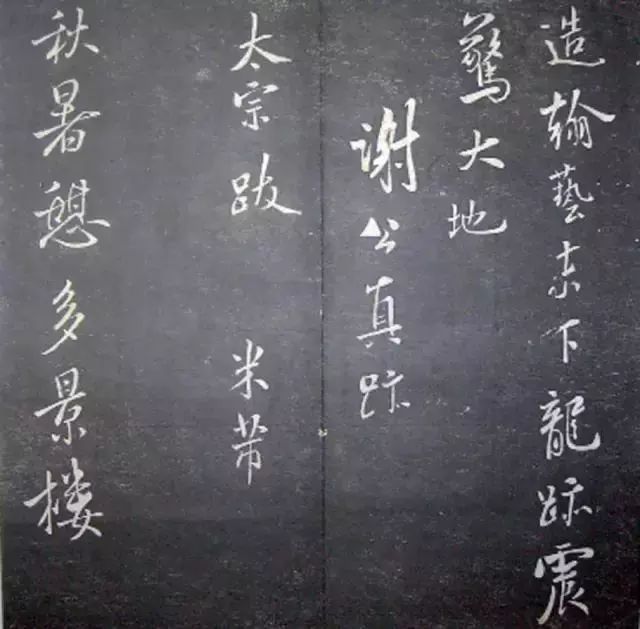 造翰藝下龍跡震
驚大地
謝公真跡
太宗跋 米芾
秋暑憩多景楼